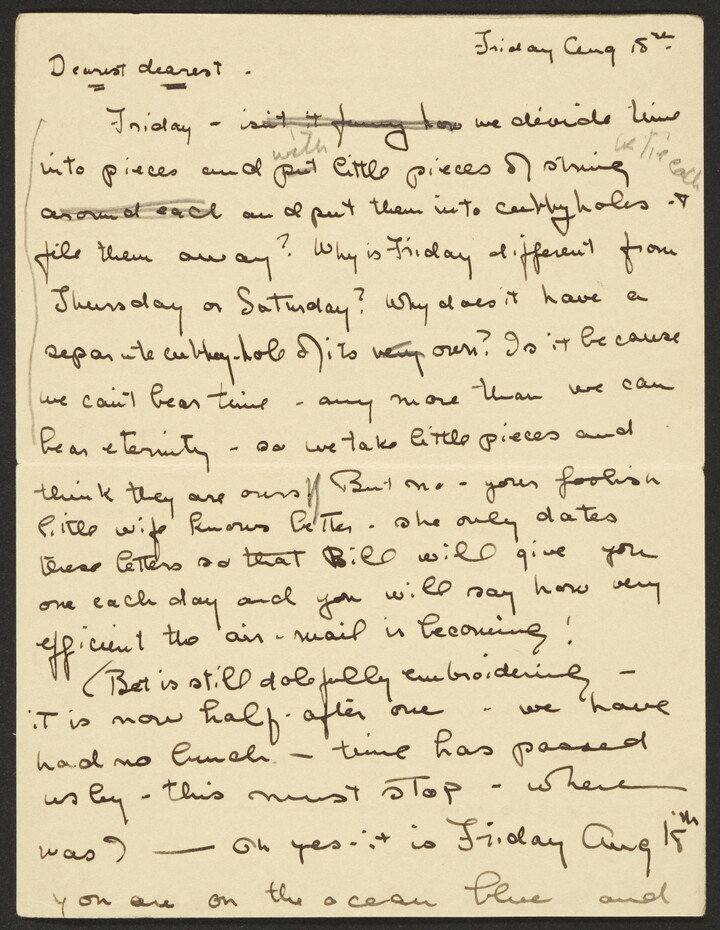 Friday Aug 18th
Dearest dearest.
Friday - isn't it funny how we divide time
into pieces and with put little pieces of string we tie each
around each and put them into cubbyholes &
file them away? Why is Friday different from
Thursday or Saturday? Why does it have a
separate cubbey-hole of its very own? Is it because
we can't bear time - any more than we can
bear eternity - so we take little pieces and
think they are ours? But no - your foolish
little wife knows better - she only dates
these letters so that Bill will give you
one each day and you will say how very
efficient the air-mail is becoming!
(Bet is still dolefully embroidering -
it is now half-after one - we have
had no lunch - time has passed
us by - this must stop - where
was I — Oh yes - it is Friday Aug 18th
you are on the ocean blue and